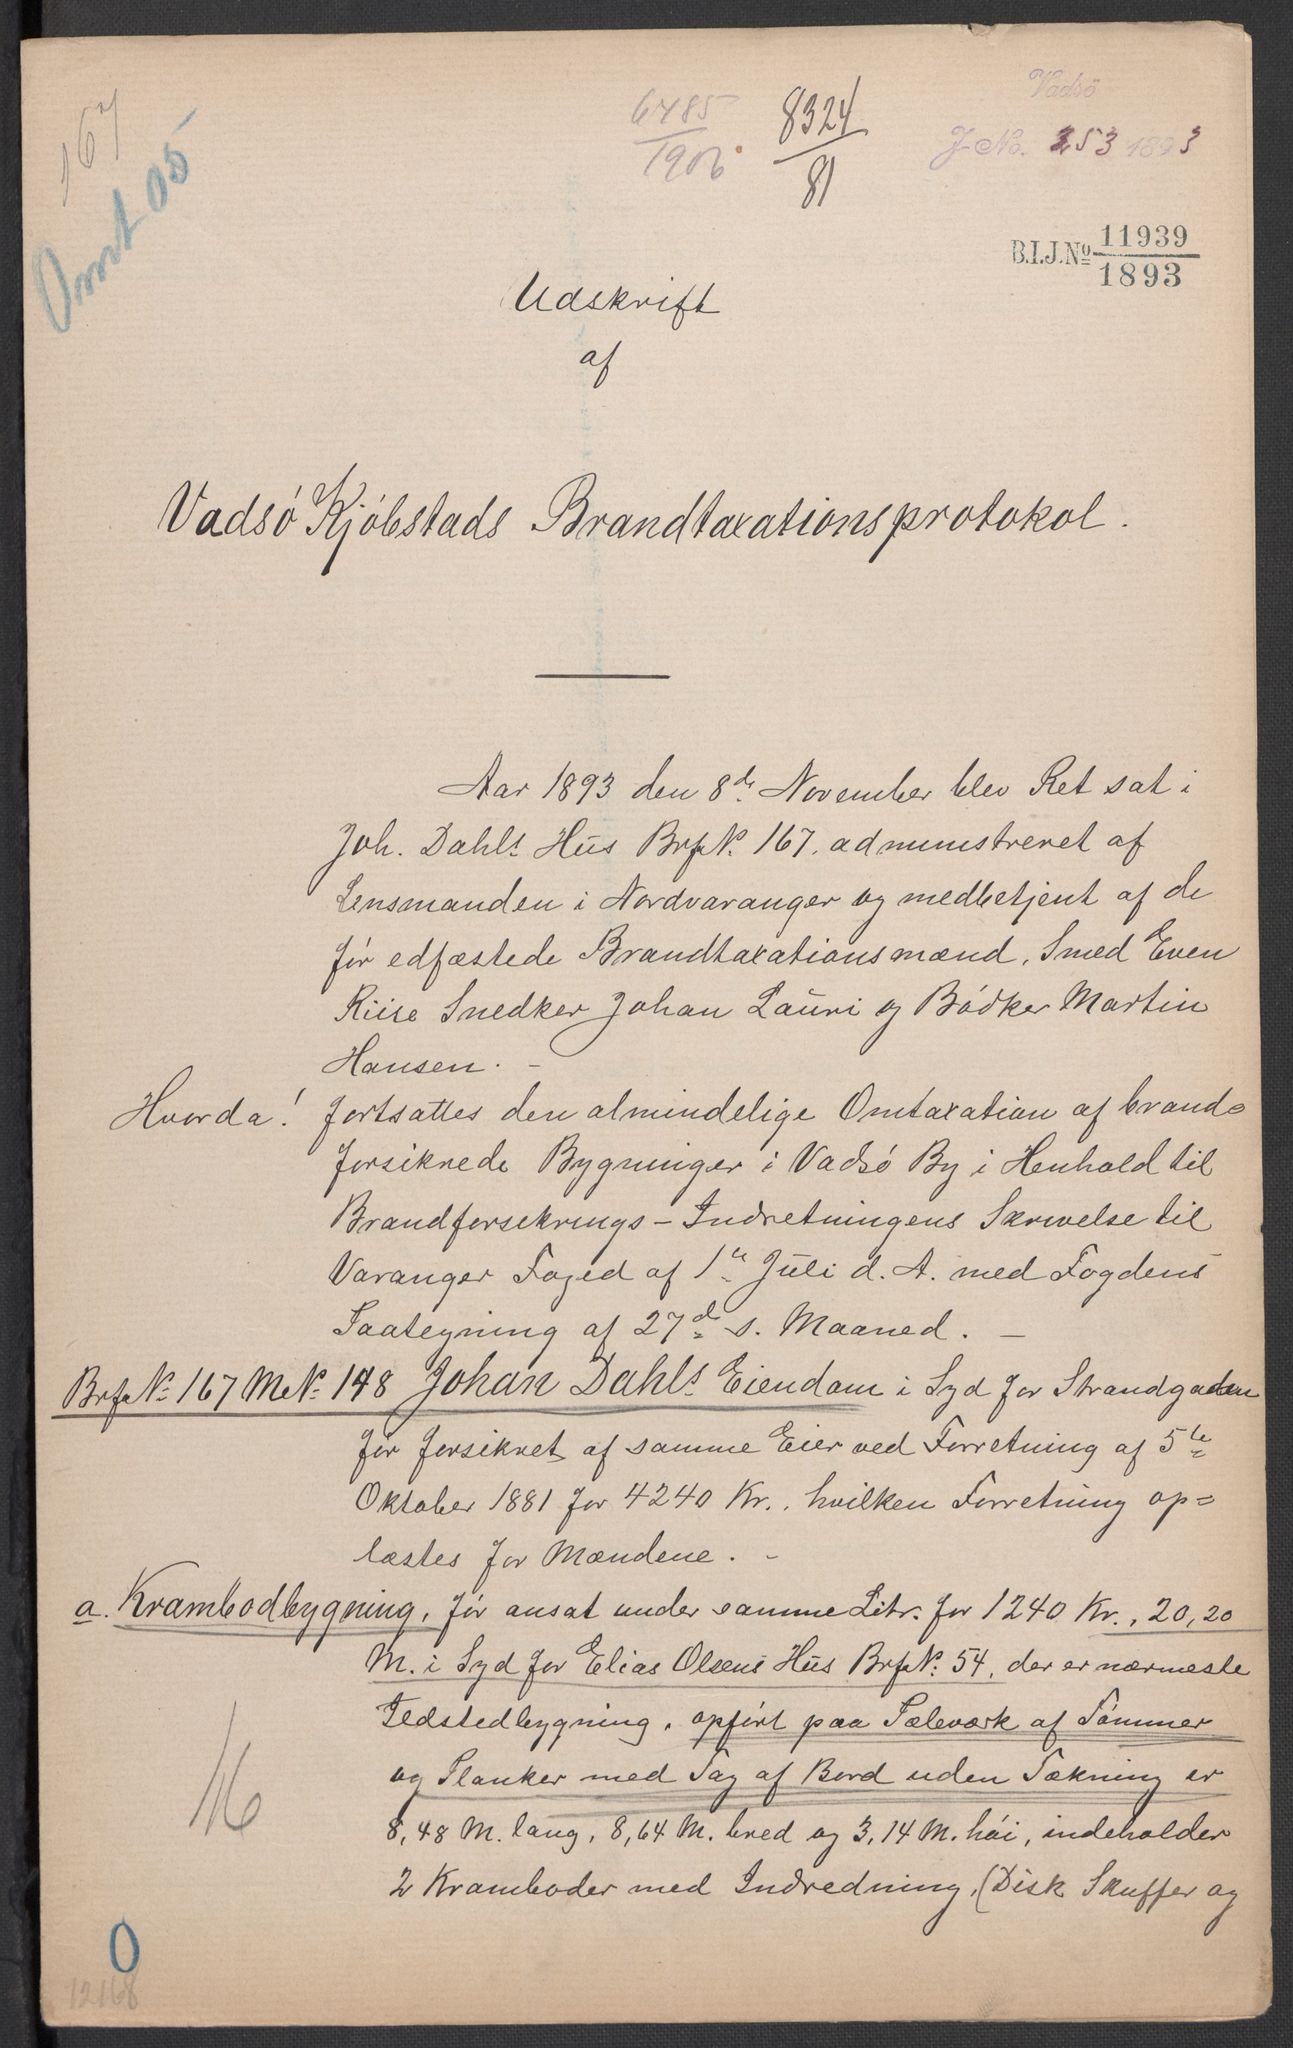 167
Omt 05
6485
1906
8324
81
Vadsö
J. No. 253 1893
B.I.J.Nº 11939
1893
Udskrift
af
Vadsö Kjöbstads Brandtaxationsprotokol.
Aar 1893 den 8de November blev Ret sat i
Joh. Dahls Hus Brf.N. 167, administreret af
Lensmanden i Nordvaranger og medbetjent af de
för edfæstede Brandtaxationsmænd, Smed Even
Riise Snedker Johan Lauri og Bödker Martin
Hansen. -
Hvorda! fortsattes den almindelige Omtaxation af brand=
forsikrede Bygninger i Vadsö By i Henhold til
Brandforsikrings-Indretningens Skrivelse til
Varanger Foged af 1te Juli d. A. med Fogdens
Paategning af 27de s. Maaned. -
Brf.No 167 M.No 148 Johan Dahls Eiendom i Syd for Strandgaden
för forsikret af samme Eier ved Forretning af 5te
Oktober 1881 for 4240 Kr., hvilken Forretning op=
læstes for Mændene. -
a. Krambodbygning, för ansat under samme Litr. for 1240 Kr., 20,20
M. i Syd for Elias Olsens Hus Brf.No 54, der er nærmeste
Ildstedbygning, opfört paa Pæleværk af Tömmer
og Planker med Tag af Bord uden Tækning er
8,48 M. lang, 8,64 M. bred og 3,14 M. höi, indeholder
2 Kramboder med Indredning, (Disk Skuffer og
0
12168